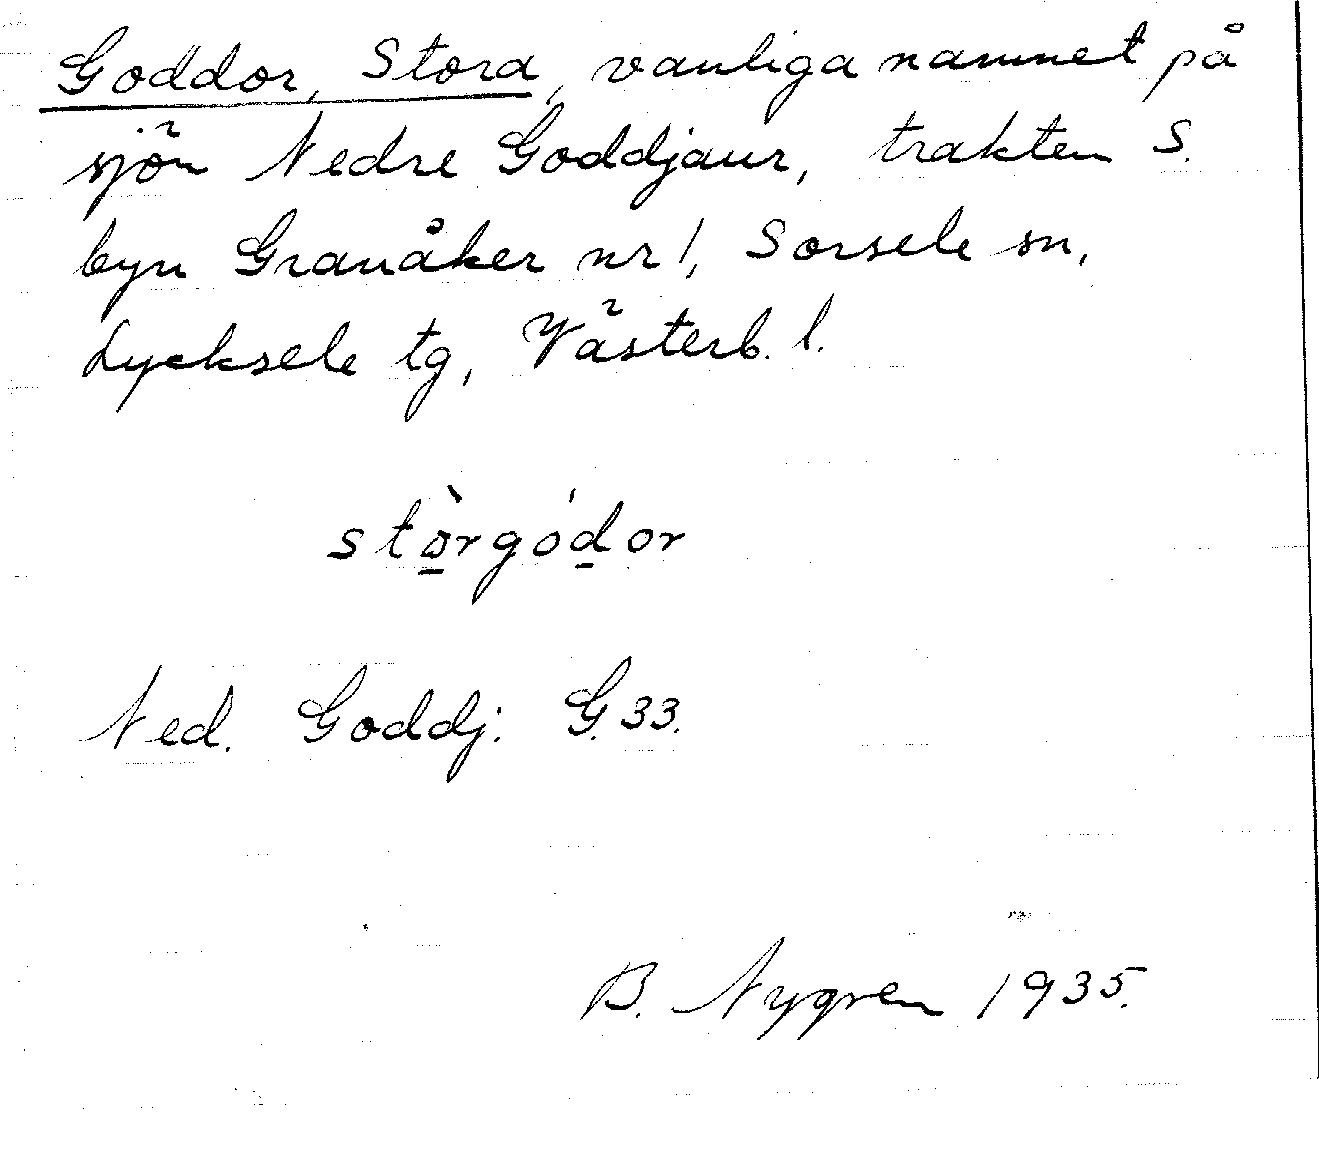 Goddor, Stora, vanliga namnet på
sjön Nedre Goddjaur, trakten S.
byn Granåker nr 1, Sorsele sn,
Lycksele tg, Västerb. l.
stò̱rgóḏor
Ned. Goddj. G.33.
B. Nygren 1935.